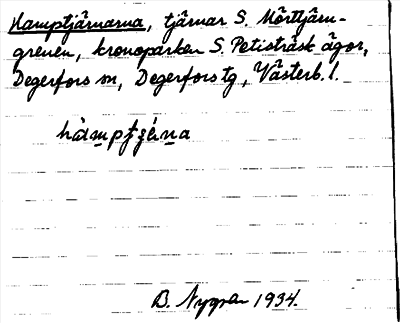 Hamptjärnarna, tjärnar S. Mörttjärn-
grenen, kronoparken S. Petisträsk ägor,
Degerfors sn, Degerfors tg, Västerb. l.
B. Nygren 1934.